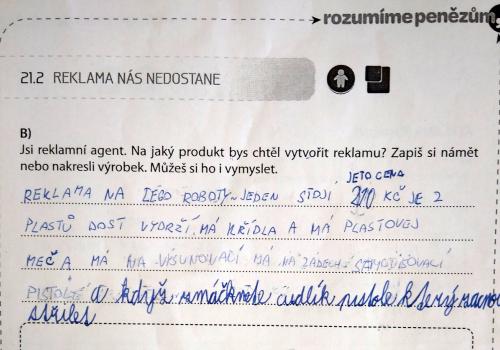 rozumímepenězům
21.2 REKLAMA NÁS NEDOSTANE
B)
Jsi reklamní agent. Na jaký produkt bys chtěl vytvořit reklamu? Zapiš si námět
nebo nakresli výrobek. Můžeš si ho i vymyslet.
JETO CENA
REKLAMA NA LEGO ROBOTY JEDEN STOJÍ 210 KČ JE Z
PLASTŮ DOST VYDRŽÍ MÁ KŘÍDLA A MÁ PLASTOVEJ
MEČ A MÁ NA VISUNOVACÍ MÁ NA ZÁDECH
PISTOLE a když zmáčknete čudlík pistole který
střílet